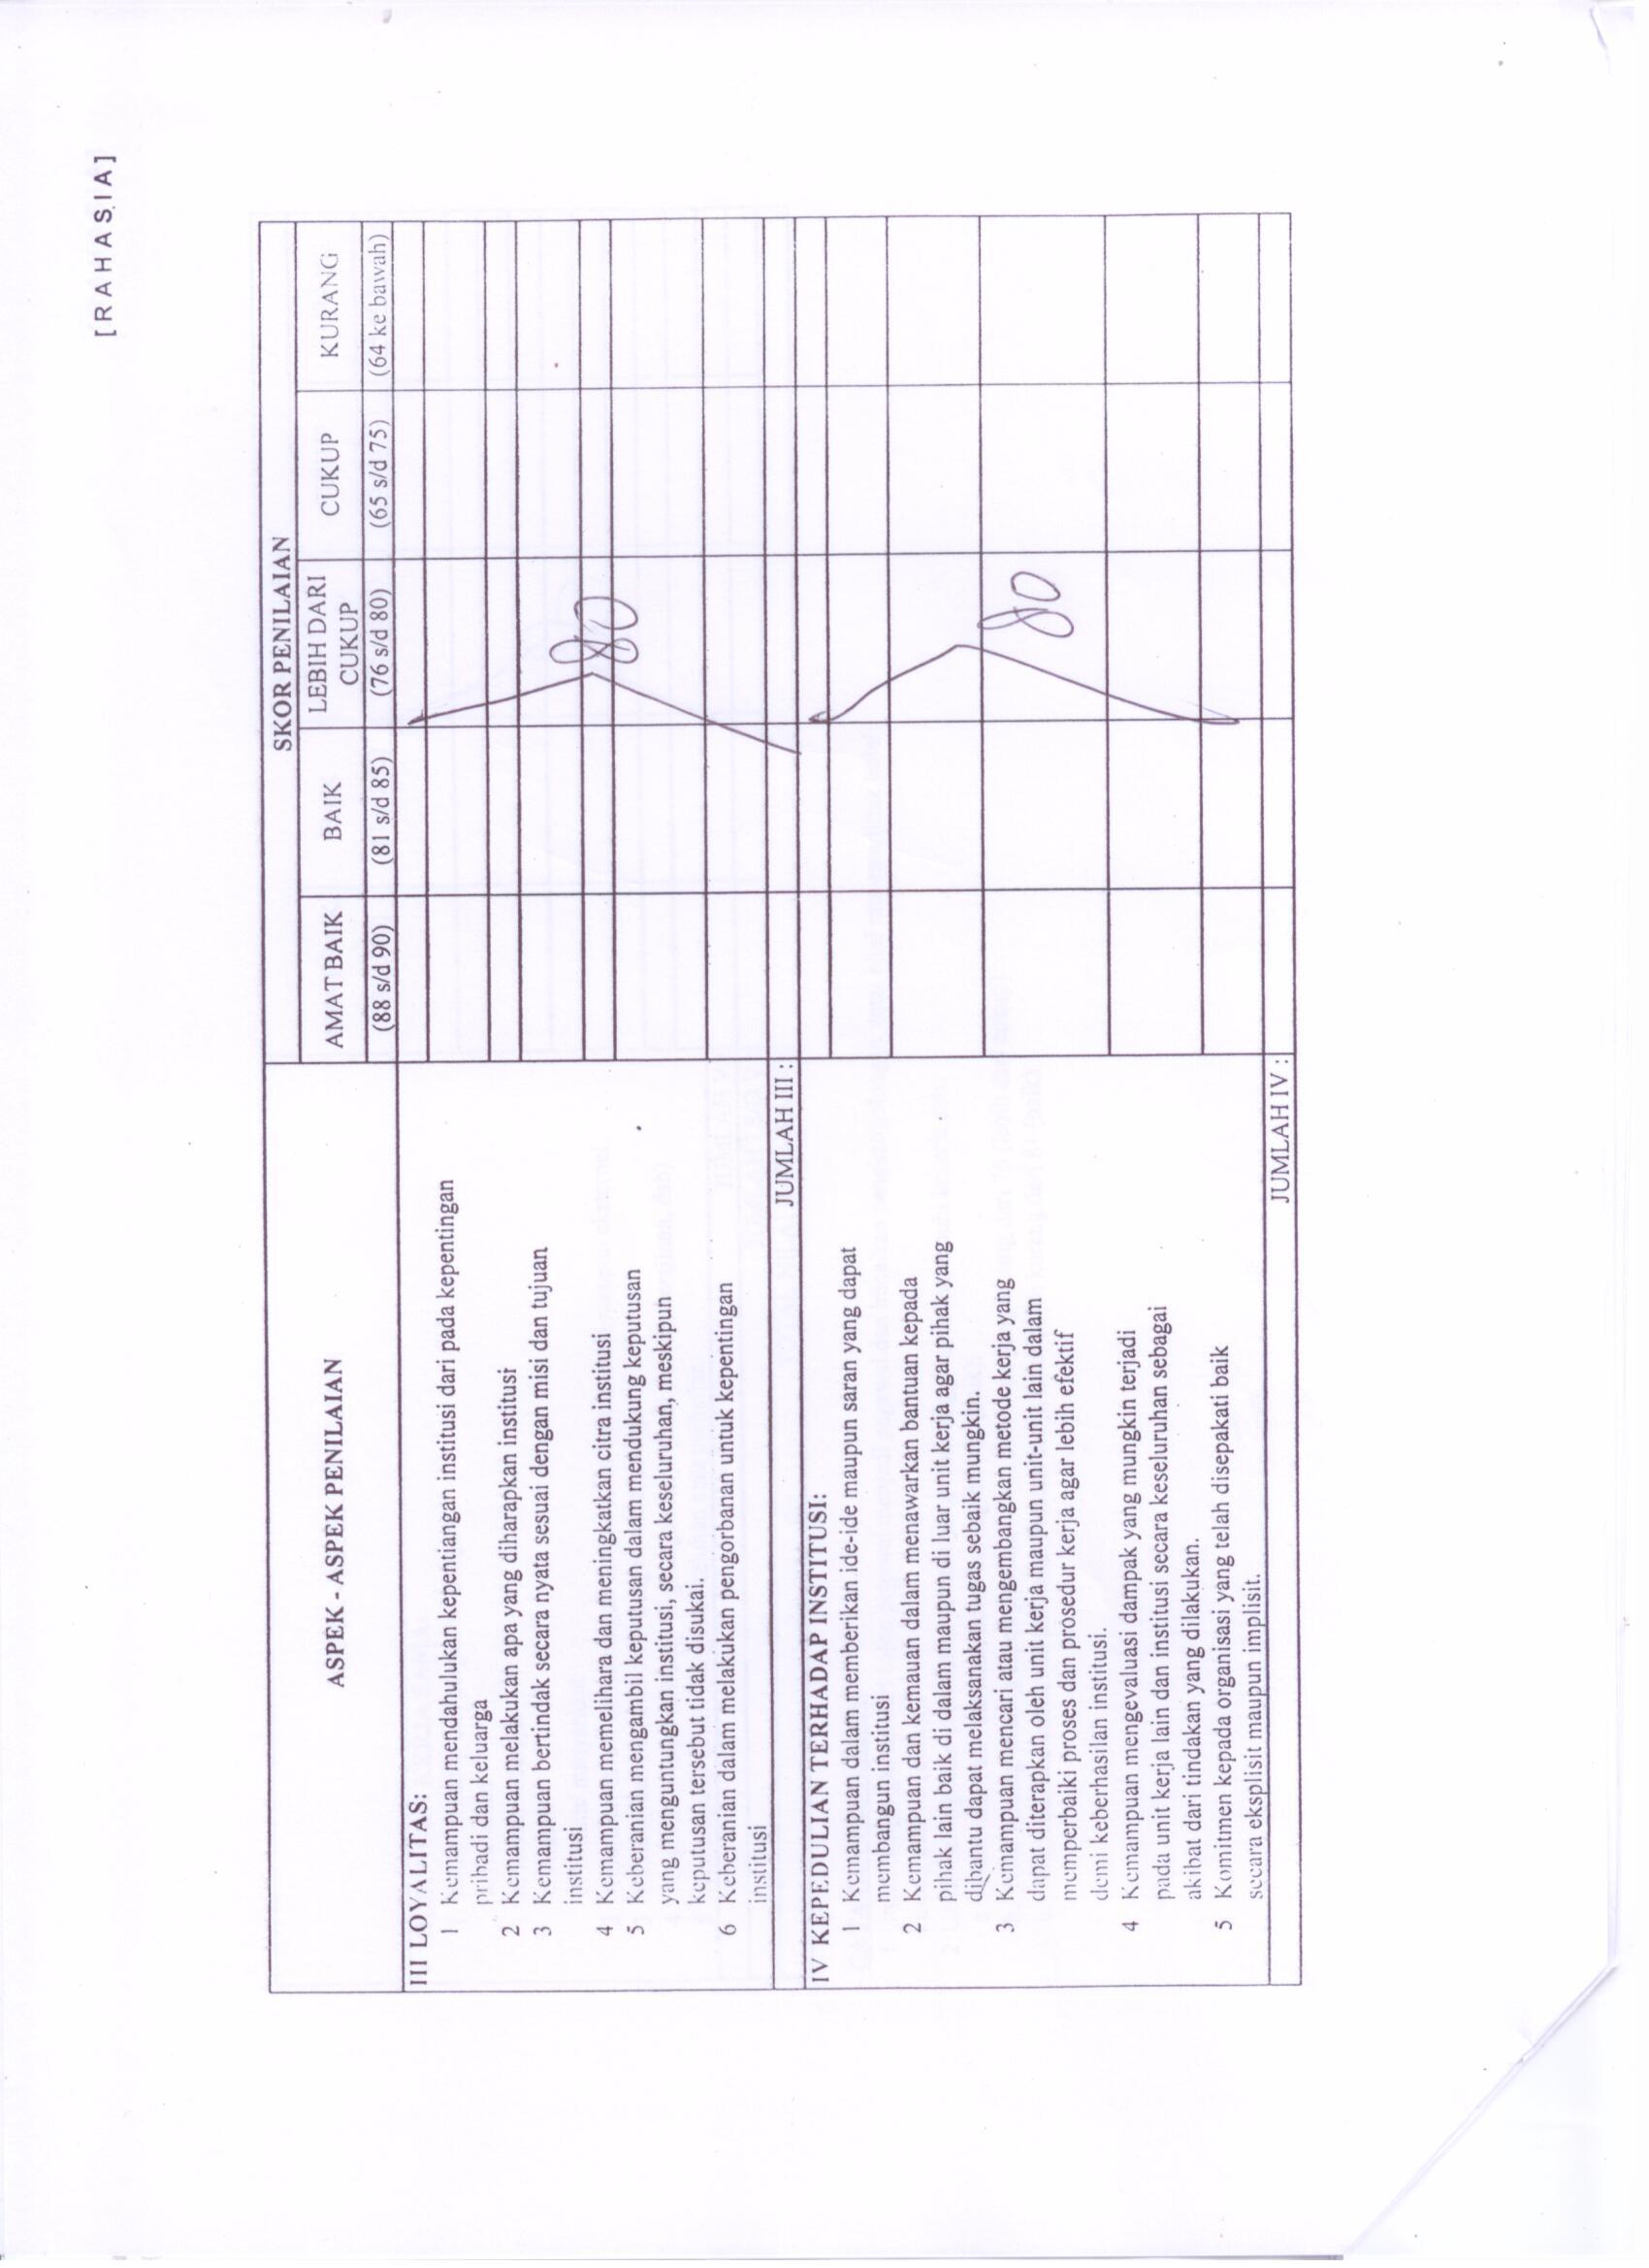 [RAHASIA]
ASPEK - ASPEK PENILAIAN
SKOR PENILAIAN
AMAT BAIK
BAIK
LEBIH DARI
CUKUP
CUKUP
KURANG
(88 s/d 90)
(81 s/d 85)
(76 s/d 80)
(65 s/d 75)
(64 ke bawah)
III LOYALITAS:
1 Kemampuan mendahulukan kepentiangan institusi dari pada kepentingan
pribadi dan keluarga
2 Kemampuan melakukan apa yang diharapkan institusi
3 Kemampuan bertindak secara nyata sesuai dengan misi dan tujuan
institusi
4 Kemampuan memelihara dan meningkatkan citra institusi
5 Keberanian mengambil keputusan dalam mendukung keputusan
yang menguntungkan institusi, secara keseluruhan, meskipun
keputusan tersebut tidak disukai.
6 Keberanian dalam melakukan pengorbanan untuk kepentingan
institusi
80
JUMLAH III :
IV KEPEDULIAN TERHADAP INSTITUSI:
1 Kemampuan dalam memberikan ide-ide maupun saran yang dapat
membangun institusi
2 Kemampuan dan kemauan dalam menawarkan bantuan kepada
pihak lain baik di dalam maupun di luar unit kerja agar pihak yang
dibantu dapat melaksanakan tugas sebaik mungkin.
3 Kemampuan mencari atau mengembangkan metode kerja yang
dapat diterapkan oleh unit kerja maupun unit-unit lain dalam
memperbaiki proses dan prosedur kerja agar lebih efektif
demi keberhasilan institusi.
4 Kemampuan mengevaluasi dampak yang mungkin terjadi
pada unit kerja lain dan institusi secara keseluruhan sebagai
akibat dari tindakan yang dilakukan.
5 Komitmen kepada organisasi yang telah disepakati baik
secara eksplisit maupun implisit.
80
JUMLAH IV :